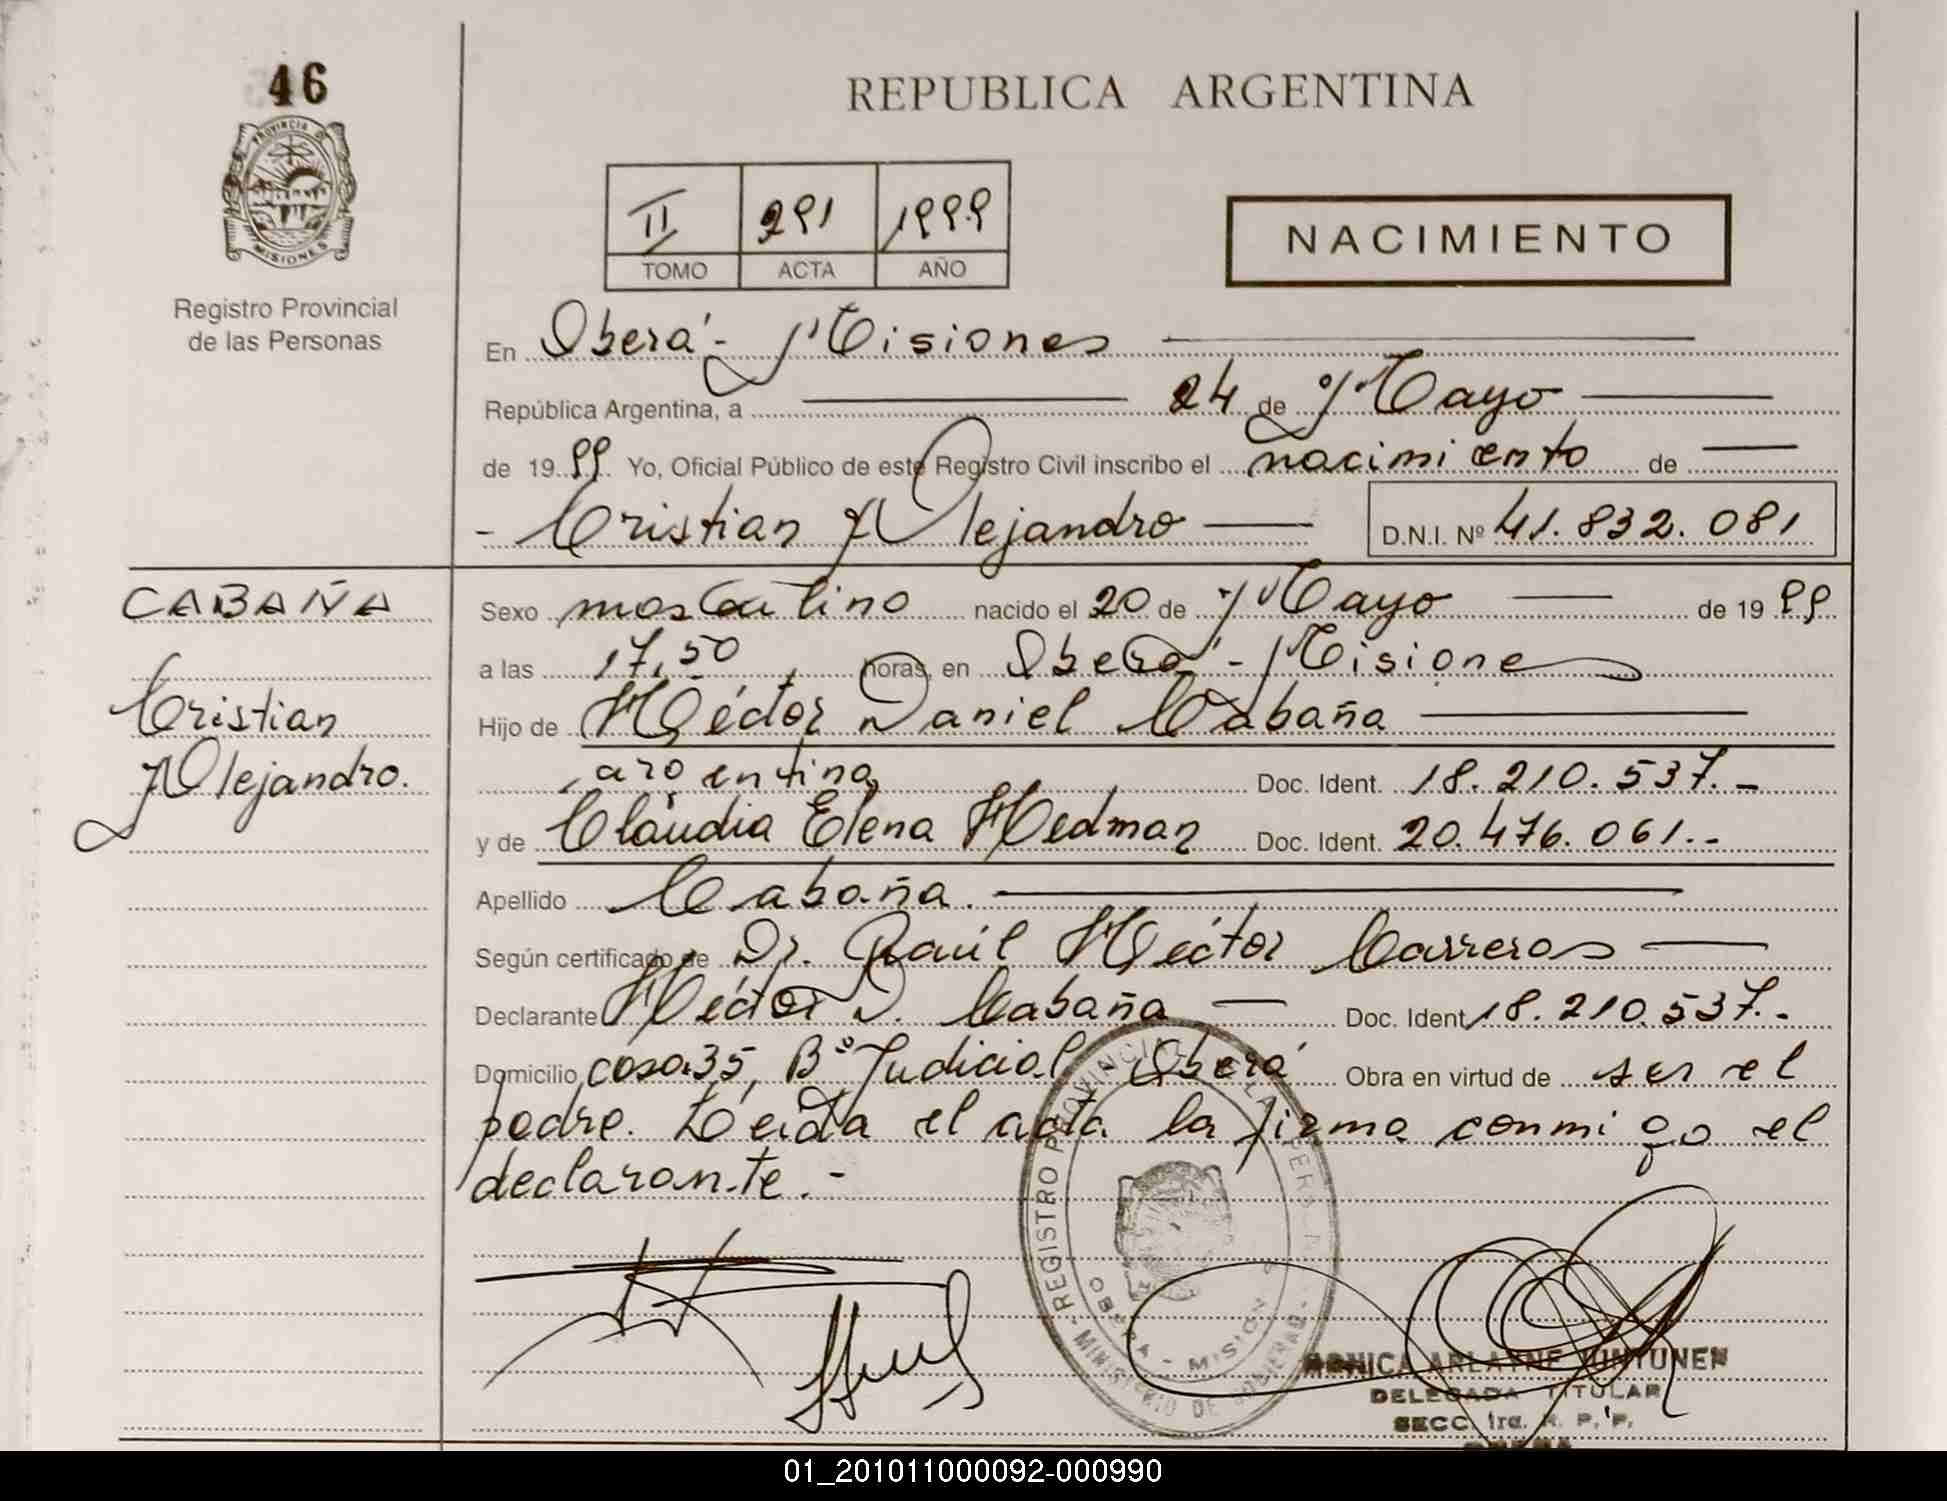 46
REPUBLICA ARGENTINA
PROVINCIA D
MISIONES
II 291 1999
TOMO ACTA AÑO
NACIMIENTO
Registro Provincial
de las Personas
En Oberá - Misiones
República Argentina, a 24 de Mayo
de 1999 Yo, Oficial Público de este Registro Civil inscribo el nacimiento de
- Cristian Alejandro D.N.I. Nº 41.832.081
CABAÑA
Cristian
Alejandro.
Sexo masculino nacido el 20 de Mayo de 1999
a las 17,50 horas, en Oberá - Misiones
Hijo de Héctor Daniel Cabaña
argentina Doc. Ident. 18.210.537.-
y de Claudia Elena Hedman Doc. Ident. 20.476.061.-
Apellido Cabaña.
Según certificado de Dr. Raúl Héctor Carreras
Declarante Héctor D. Cabaña Doc. Ident. 18.210.537.-
Domicilio casa 35, Bº Judicial Oberá Obra en virtud de ser el
padre. Leida el acta la firma conmigo el
declarante.-
REGISTRO PROVINCIAL DE LAS PERSONAS
OBERA - MISIONES
- MINISTERIO DE GOBIERNO -
MONICA ARLAYNE
DELEGADA TITULAR
SECC. 1ra. R. P. P.
OBERA
01_201011000092-000990